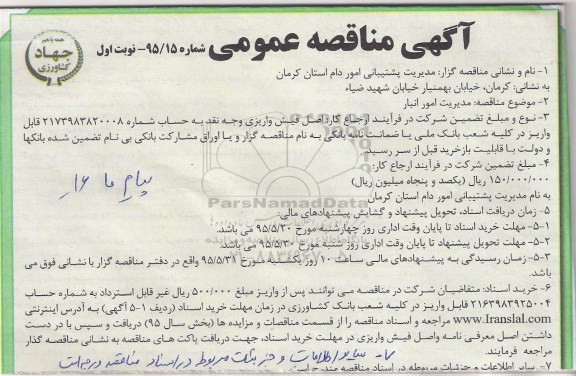 آگهی مناقصه عمومی شماره ۹۵/۱۵- نوبت اول
همه با هم
جهاد
کشاورزی
۱- نام و نشانی مناقصه گزار: مدیریت پشتیبانی امور دام استان کرمان
به نشانی: کرمان، خیابان بهمنیار خیابان شهید ضیاء
۲- موضوع مناقصه: مدیریت امور انبار
۳- نوع و مبلغ تضمین شرکت در فرآیند ارجاع کار: اصل فیش واریزی وجه نقد به حساب شماره ۲۱۷۳۹۸۳۸۲۰۰۰۸ قابل
واریز در کلیه شعب بانک ملی یا ضمانت نامه بانکی به نام مناقصه گزار و یا اوراق مشارکت بانکی بی نام تضمین شده بانکها
و دولت با قابلیت بازخرید قبل از سر رسید.
۴- مبلغ تضمین شرکت در فرآیند ارجاع کار:
۱۵۰/۰۰۰/۰۰۰ ریال (یکصد و پنجاه میلیون ریال)
پیام ما
به نام مدیریت پشتیبانی امور دام استان کرمان
ParsNamadData
۵- زمان دریافت اسناد، تحویل پیشنهاد و گشایش پیشنهادهای مالی:
۱-۵- مهلت خرید اسناد تا پایان وقت اداری روز چهارشنبه مورخ ۹۵/۵/۲۰ می باشد.
۲-۵- مهلت تحویل پیشنهاد تا پایان وقت اداری روز شنبه مورخ ۹۵/۵/۳۰ می باشد.
۳-۵- زمان رسیدگی به پیشنهادهای مالی ساعت ۱۰ روز یکشنبه مورخ ۹۵/۵/۳۱ واقع در دفتر مناقصه گزار با نشانی فوق می
باشد.
۶- خرید اسناد: متقاضیان شرکت در مناقصه می توانند پس از واریز مبلغ ۵۰۰/۰۰۰ ریال غیر قابل استرداد به شماره حساب
۲۱۶۳۹۸۳۹۲۵۰۰۴ قابل واریز در کلیه شعب بانک کشاورزی در زمان مهلت خرید اسناد (ردیف ۱-۵ آگهی) به آدرس اینترنتی
www.Iranslal.com مراجعه و اسناد مناقصه را از قسمت مناقصات و مزایده ها (بخش سال ۹۵) دریافت و سپس با در دست
داشتن اصل معرفی نامه واصل فیش واریزی در مهلت خرید اسناد، جهت دریافت پاکت های مناقصه به نشانی مناقصه گذار
مراجعه فرمایند.
۷- سایر اطلاعات و جزئیات مربوط در اسناد مناقصه درج است
۷- سایر اطلاعات و جزئیات مربوطه در اسناد مناقصه مندرج است.